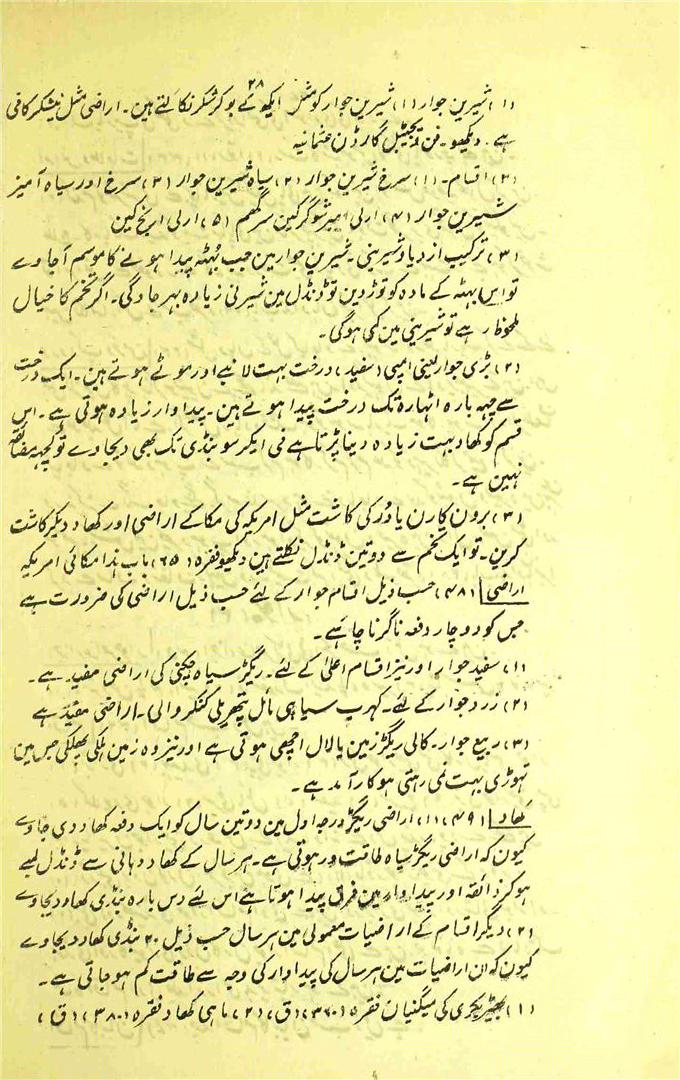 ۲۸
(۱) شیرین جوار (۱) شیرین جوار کو مثل ایکھ کے بو کر شکر نکالتے ہین۔ اراضی مثل نیشکر کافی
ہے۔ دیکھو۔ فن ویجیٹبل گارڈن عثمانیہ
(۲) اقسام۔ (۱) سرخ شیرین جوار (۲) سیاہ شیرین جوار (۳) سرخ اور سیاہ آمیز
شیرین جوار (۴) ارلی امبر شوگر کین سرگھم (۵) ارلی اورنج کین
(۳) ترکیب ازدیاد شیرینی۔ شیرین جوار مین جب بہٹہ پیدا ہونے کا موسم آجاوے
تو اس بہٹہ کے مادہ کو توڑ دین تو ڈنڈل مین شیرنی زیادہ بہر جاوگی۔ اگر تخم کا خیال
ملحوظ رہے تو شیرینی مین کمی ہوگی۔
(۲) بڑی جوار یعنی امپی (سفید) درخت بہت لانبے اور موٹے ہوتے ہین۔ ایک درخت
سے چہہ بارہ اٹہارہ تک درخت پیدا ہوتے ہین۔ پیداوار زیادہ ہوتی ہے۔ اس
قسم کو کھاد بہت زیادہ دینا پڑتا ہے فی ایکر سو بنڈی تک بھی دیجاوے تو کچہہ مضائقہ
نہین ہے۔
(۳) برون کارن یا دُر کی کاشت مثل امریکہ کی مکا کے اراضی اور کھاد دیکر کاشت
کرین۔ تو ایک تخم سے دو تین ڈنڈل نکلتے ہین دیکھو فقرہ (۶۵) باب ہذا مکائی امریکہ
اراضی (۴۸) حسب ذیل اقسام جوار کے لئے حسب ذیل اراضی کی ضرورت ہے
جس کو دو چار دفعہ ناگرنا چاہئے۔
(۱) سفید جوار اور نیز اقسام اعلیٰ کے لئے۔ ریگڑ سیاہ چکنی کی اراضی مفید ہے۔
(۲) زرد جوار کے لئے۔ کہرب سیاہی مائل پتھریلی کنکر والی۔ اراضی مفید ہے
(۳) ربیع جوار۔ کالی ریگڑ زمین یا لال اچھی ہوتی ہے اور نیز وہ زمین ہلکی پھلکی جس مین
تہوڑی بہت نمی رہتی ہو کار آمد ہے۔
کھاد (۴۹) (۱) اراضی ریگڑ درجہ اول مین دو تین سال کو ایک دفعہ کھاد دی جاوے
کیون کہ اراضی ریگڑ سیاہ طاقت ور ہوتی ہے۔ ہر سال کے کھاد دہانی سے ڈنڈل لمبے
ہو کر ذائقہ اور پیداوار مین فرق پیدا ہوتا ہے اس لئے دس بارہ بنڈی کھاد دیجاوے
(۲) دیگر اقسام کے اراضیات معمولی مین ہر سال حسب ذیل ۲۰ بنڈی کھاد دیجاوے
کیون کہ ان اراضیات مین ہر سال کی پیداوار کی وجہ سے طاقت کم ہو جاتی ہے۔
(۱) بھیڑ بکری کی میگنیان فقرہ (۳۶۰) (ق) (۲) ماہی کھاد فقرہ (۳۸۰) (ق)